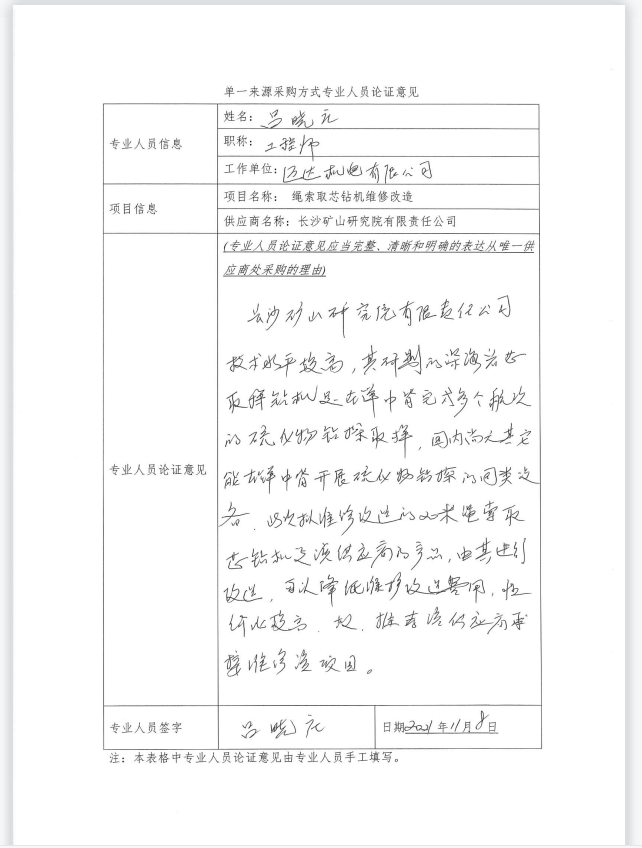 单一来源采购方式专业人员论证意见
专业人员信息
姓名：吕晓元
职称：工程师
工作单位：迈达机电有限公司
项目信息
项目名称： 绳索取芯钻机维修改造
供应商名称：长沙矿山研究院有限责任公司
专业人员论证意见
(专业人员论证意见应当完整、清晰和明确的表达从唯一供
应商处采购的理由)
长沙矿山研究院有限责任公司
技术水平较高，其研制的深海岩芯
取样钻机是在洋中脊完成多个航次
的硫化物钻探取样，国内尚无其它
能在洋中脊开展硫化物钻探的同类设
备，此次拟维修改造的20米绳索取
芯钻机是该供应商的产品，由其进行
改造，可以降低维修改造费用，性
价比较高，故，推荐该供应商承
接维修改造项目。
专业人员签字
吕晓元
日期2021年11月8日
注：本表格中专业人员论证意见由专业人员手工填写。